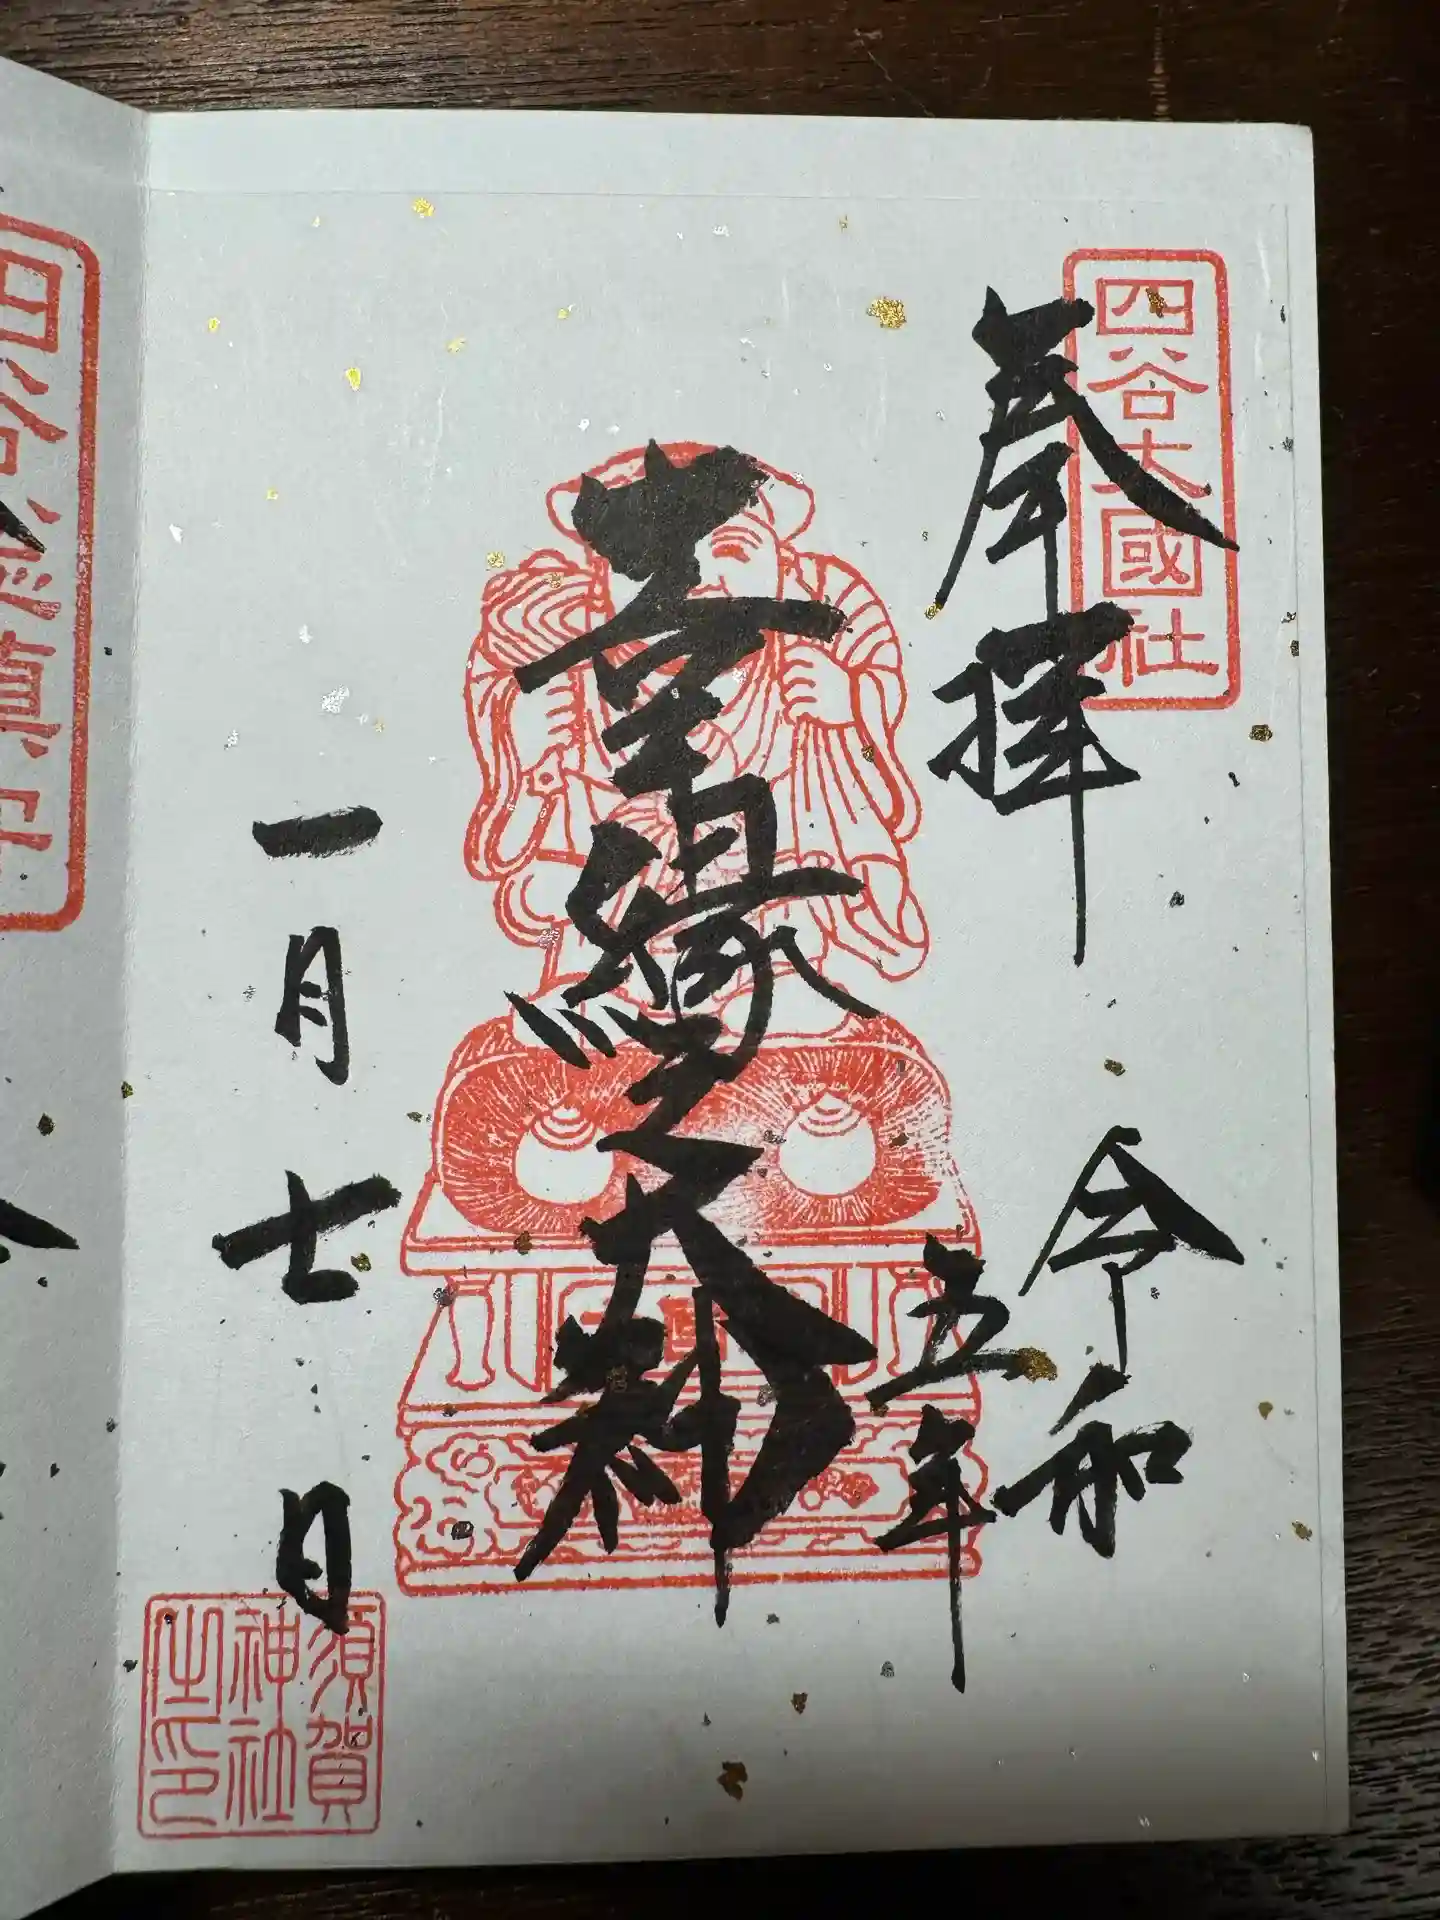 四谷大國社
奉拝
令和
五年
幸縁之大神
一月七日
須賀
神社
之印
四谷總鎮守